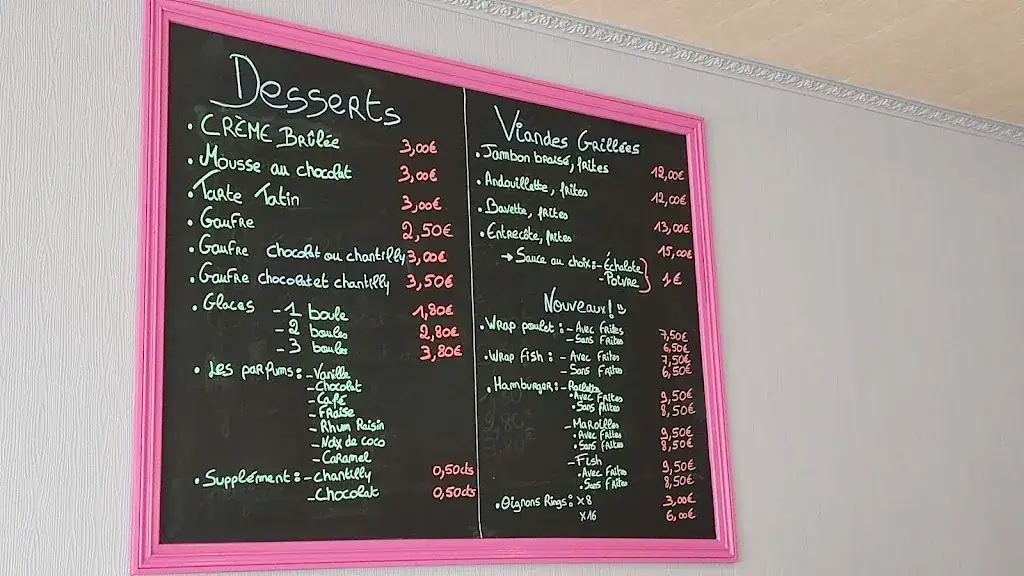 Desserts
• CRÈME BRûlée 3,00€
• Mousse au chocolat 3,00€
• Tarte Tatin 3,00€
• Gaufre 2,50€
• Gaufre chocolat ou chantilly 3,00€
• Gaufre chocolat et chantilly 3,50€
• Glaces - 1 boule 1,80€
- 2 boules 2,80€
- 3 boules 3,80€
• Les parfums: - Vanille
- Chocolat
- Café
- Fraise
- Rhum Raisin
- Noix de coco
- Caramel
• Supplément: - chantilly 0,50cts
- Chocolat 0,50cts
Viandes Grillées
• Jambon braisé, frites 12,00€
• Andouillette, frites 12,00€
• Bavette, frites 13,00€
• Entrecôte, frites 15,00€
→ Sauce au choix: - Échalote
- Poivre 1€
Nouveaux!
• Wrap poulet: - Avec Frites 7,50€
- Sans Frites 6,50€
• Wrap Fish: - Avec Frites 7,50€
- Sans Frites 6,50€
• Hamburger: - Raclette
• Avec Frites 9,50€
• Sans Frites 8,50€
- Maroilles
• Avec Frites 9,50€
• Sans Frites 8,50€
- Fish
• Avec Frites 9,50€
• Sans Frites 8,50€
• Oignons Rings: x8 3,00€
x16 6,00€